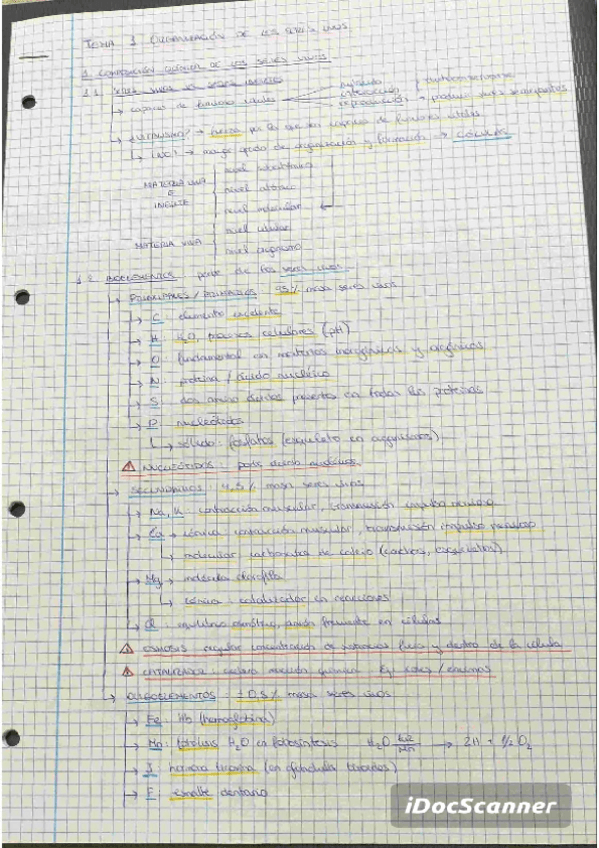 TEMA 1 ORGANIZACIÓN DE LOS SERES VIVOS
1. COMPOSICIÓN QUÍMICA DE LOS SERES VIVOS
1.1.
→ capaces de funciones vitales
nutrición
interacción
reproducción → producir seres semejantes
→ fuerza por la que son capaces de funciones vitales
→ mayor grado de organización y formación → CÉLULAS
MATERIA VIVA E INERTE
nivel atómico
nivel molecular ←
MATERIA VIVA
nivel celular
nivel orgánico
1.2 BIOELEMENTOS: parte de los seres vivos
→ PRINCIPALES / PRIMARIOS 95% masa seres vivos
→ C: elemento
→ H: H₂O, procesos celulares (pH)
→ O: fundamental en materias inorgánicas y orgánicas
→ N: proteína / ácido nucleico
→ S: dos amino ácidos presentes en todas las proteínas
→ P: nucleótidos
↳ sólido: fosfatos (esqueleto en
⚠ NUCLEÓTIDOS: parte ácido nucleicos
→ SECUNDARIOS: 4,5% masa seres vivos
→ Na, K: contracción muscular, transmisión impulso nervioso
→ Ca → iónica: contracción muscular, transmisión impulso nervioso
↳ molecular: carbonatos de calcio (conchas, esqueletos)
→ Mg → molécula clorofila
↳ iónica: catalizador en reacciones
→ Cl: equilibrio osmótico, anión frecuente en células
⚠ OSMOSIS: regular concentración de sustancias fuera y dentro de la célula
⚠ CATALIZADOR: acelera reacción química Ej: / enzimas
→ OLIGOELEMENTOS: ±0,5% masa seres vivos
→ Fe: Hb (hemoglobina)
→ Mn: fotólisis H₂O en fotosíntesis H₂O luz/Mn → 2H + ½ O₂
→ I: hormona tiroxina (en glándula tiroides)
→ F: esmalte dentario
iDocScanner